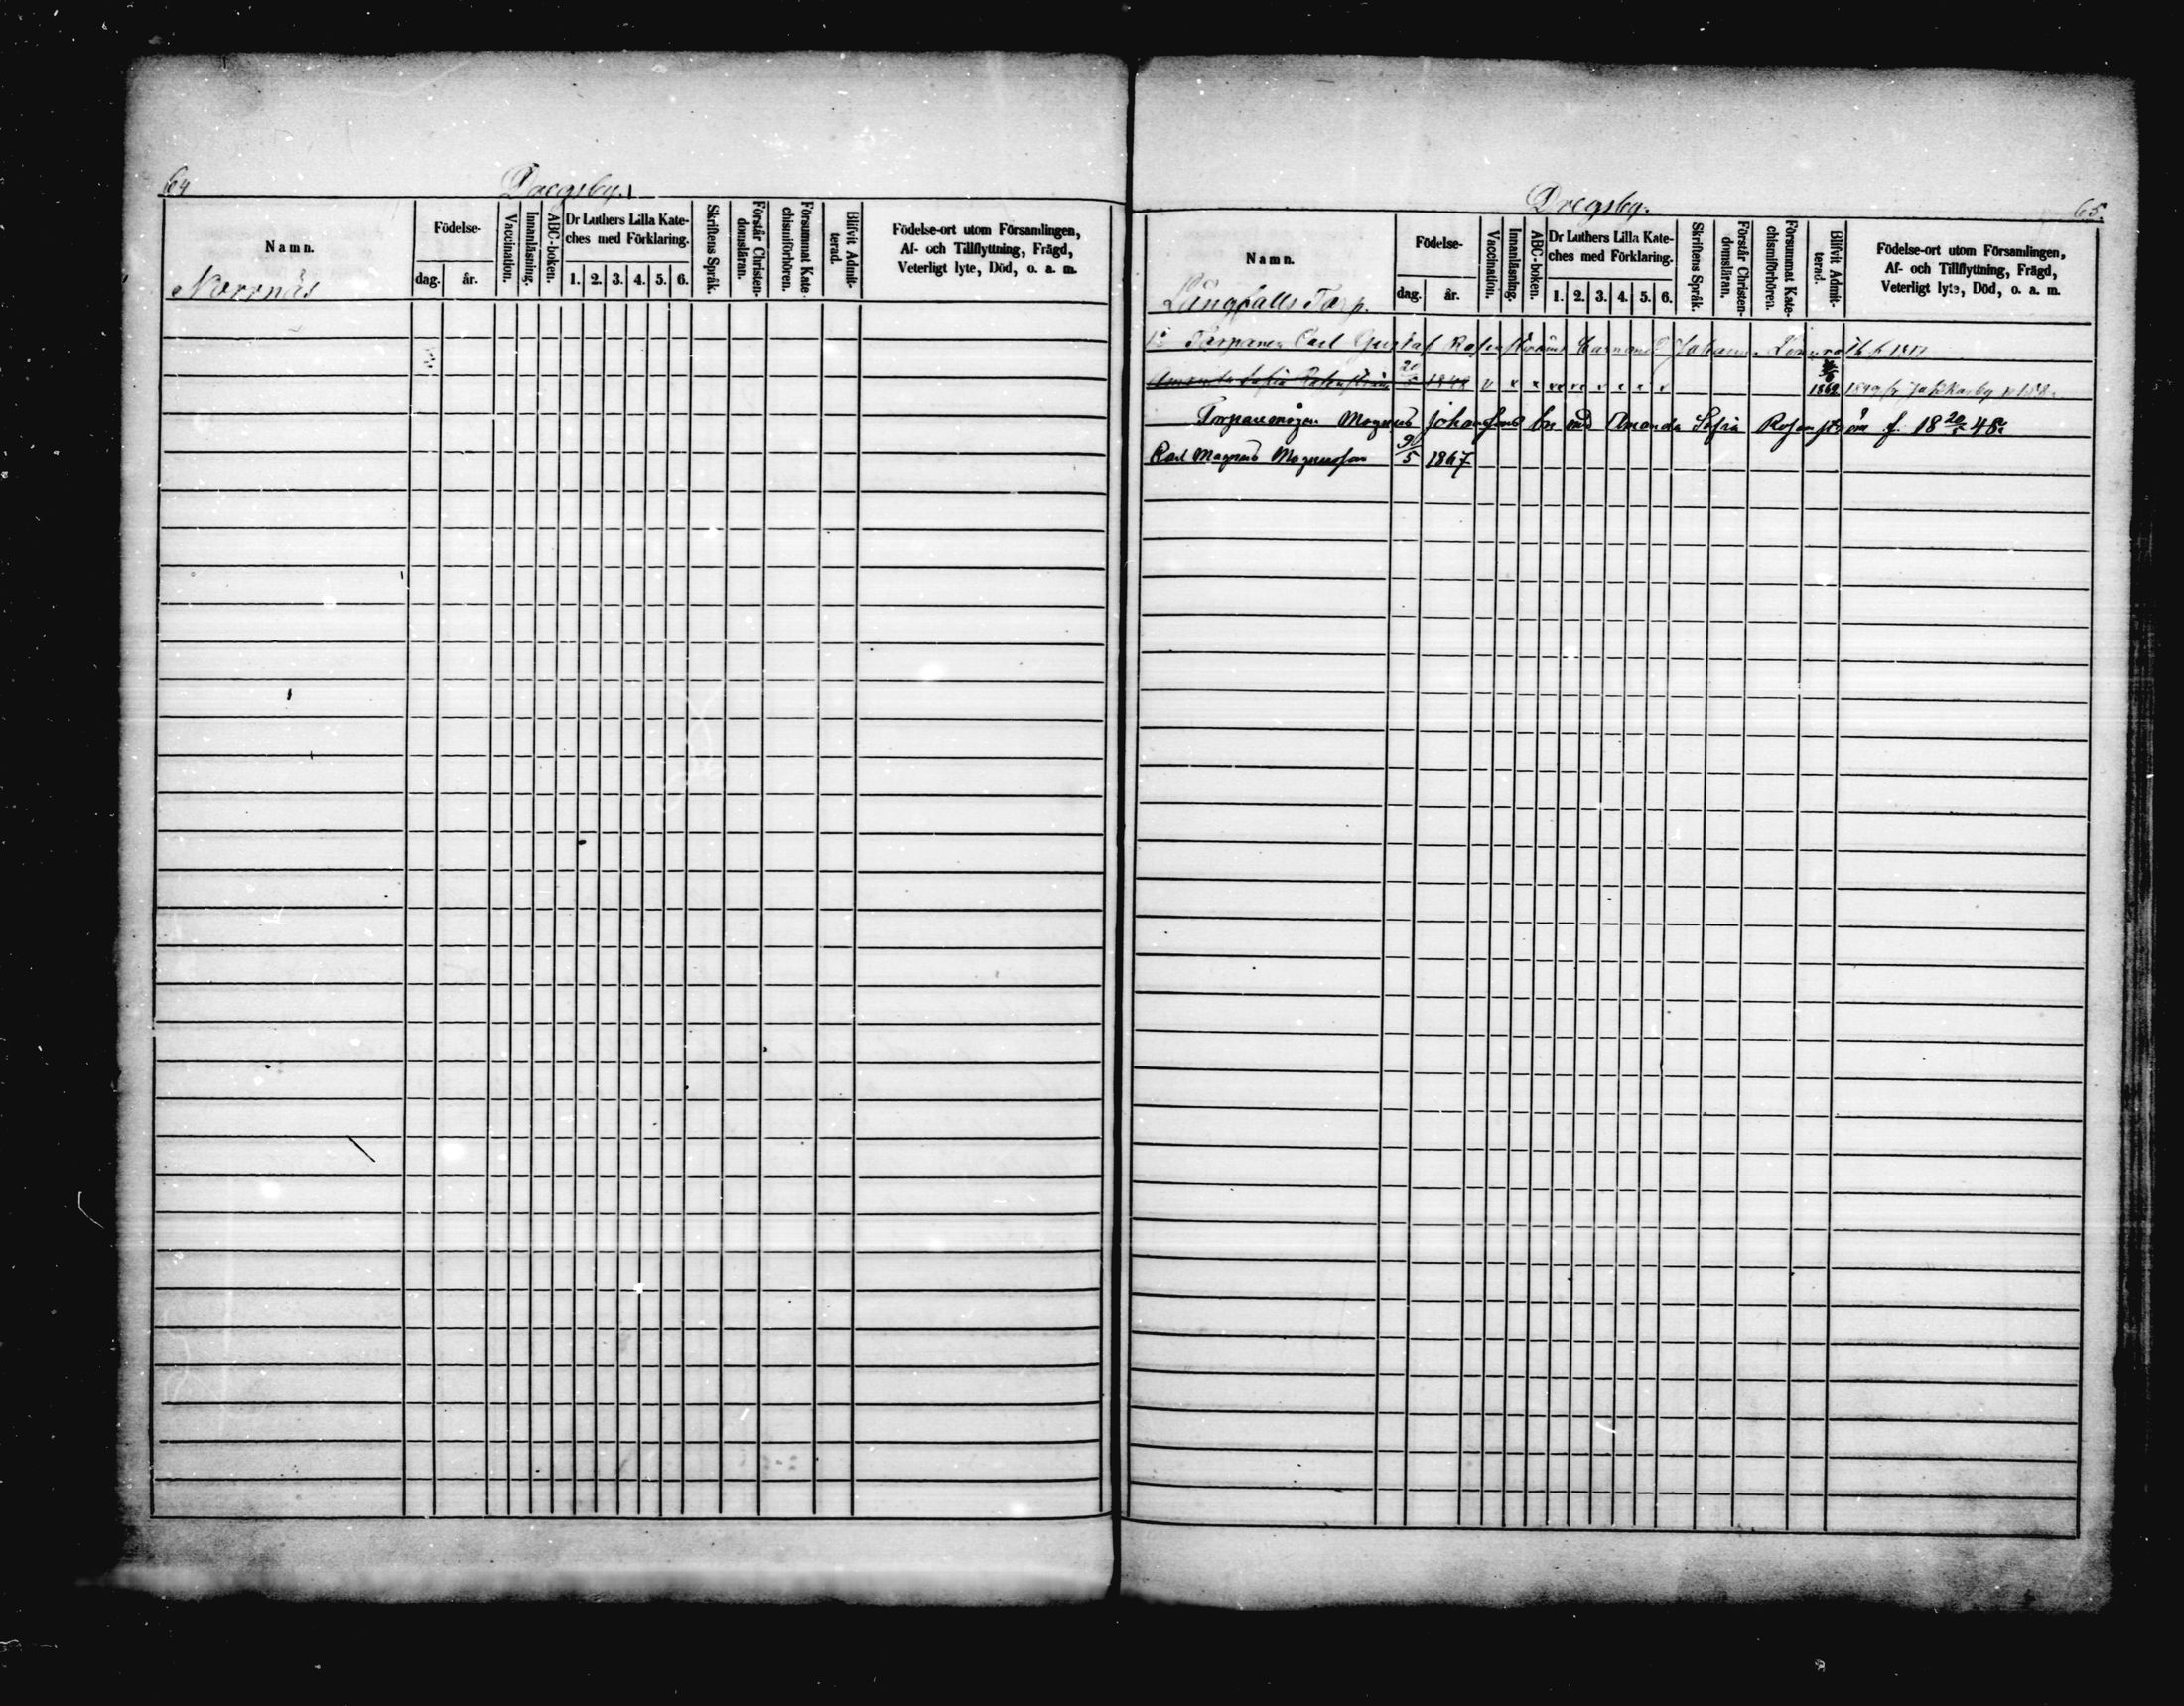 64
Dregsby.
Namn.
Födelse-
dag.
år.
Vaccination.
Innanläsning.
ABC-boken.
Dr Luthers Lilla Kate-
ches med Förklaring.
1. 2. 3. 4. 5. 6.
Skriftens Språk.
Förstår Christen-
domsläran.
Försummat Kate-
chismiförhören.
Blifvit Admit-
terad.
Födelse-ort utom Församlingen,
Af- och Tillflyttning, Frägd,
Veterligt lyte, Död, o. a. m.
Norrnäs
Dregsby.
65.
Namn.
Födelse-
dag.
år.
Vaccination.
Innanläsning.
ABC-boken.
Dr Luthers Lilla Kate-
ches med Förklaring.
1. 2. 3. 4. 5. 6.
Skriftens Språk.
Förstår Christen-
domsläran.
Försummat Kate-
chismiförhören.
Blifvit Admit-
terad.
Födelse-ort utom Församlingen,
Af- och Tillflyttning, Frägd,
Veterligt lyte, Död, o. a. m.
Långhalls Torp.
Torparen Carl Gustaf Johanna
Amanda Sofia Rosenström 20/5 1848 v x x xx xx x x x x 1862
Torparemågen Magnus Johansons bn md Amanda Sofia Rosenström f. 18 20/5 48
Carl Magnus Magnusson 9/5 1867